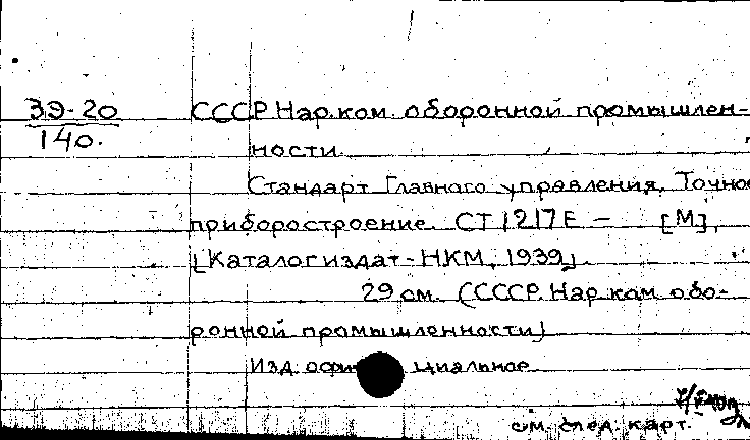 39-20 СССР Нар.ком. оборонной промышлен-
140. ности.
Стандарт Главного управления. Точное
приборостроение. СТ 1217Е — [М],
[Каталогиздат-НКМ, 1939].
29 см. (СССР. Нар.ком. обо-
ронной промышленности)
Изд. официальное
см. след. карт.